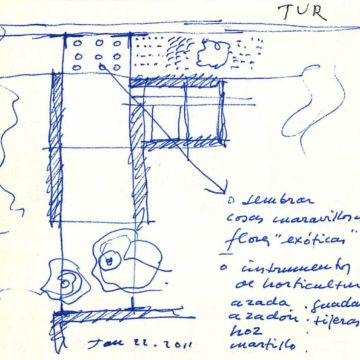 TUR
o sembrar
cosas maravillosa
flores "exóticas"
o instrumentos
de horticultur
azada . guada
azadón . tijeras
hoz
martillo.
Jan 22. 2011